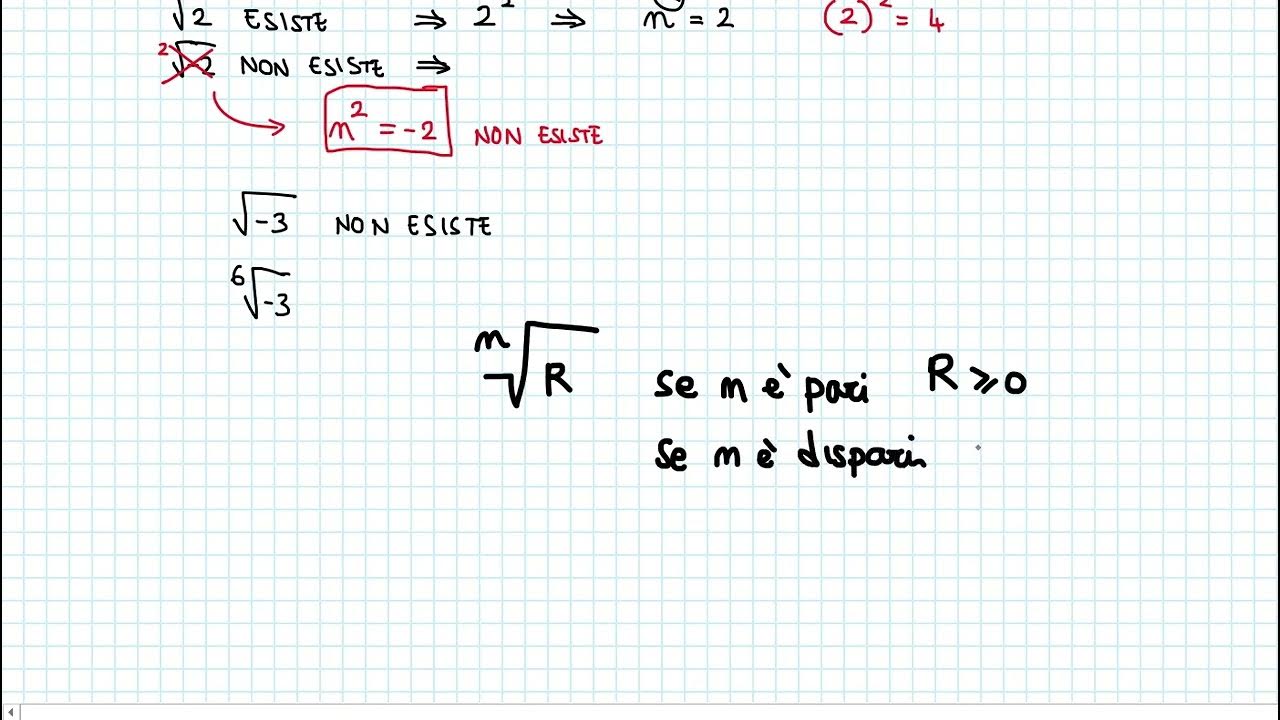 √2 ESISTE ⇒ 2² ⇒ n = 2 (2)² = 4
²√-2 NON ESISTE ⇒
n² = -2 NON ESISTE
√-3 NON ESISTE
⁶√-3
ⁿ√R se n è pari R ⩾ 0
se n è dispari